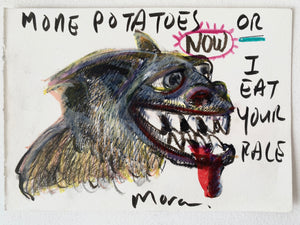 MORE POTATOES OR
NOW
I
EAT
YOUR
Mora.